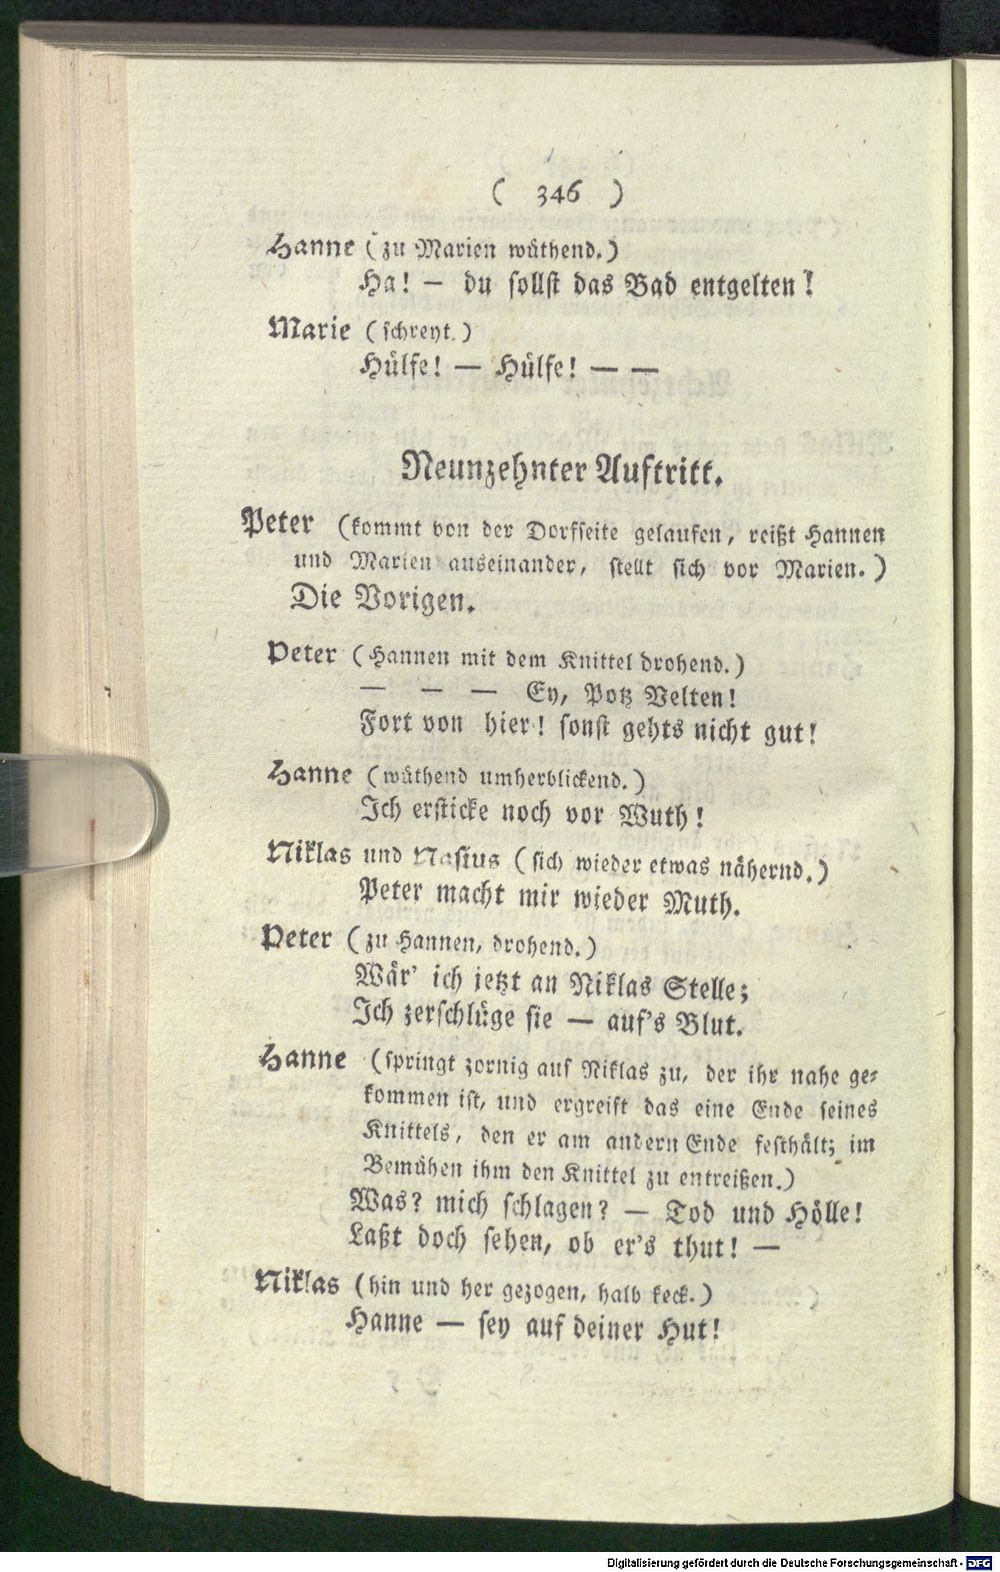 ( 346 )
Hanne (zu Marien wüthend.)
Ha! — du sollst das Bad entgelten!
Marie (schreyt.)
Hülfe! — Hülfe! — —
Neunzehnter Auftritt.
Peter (kommt von der Dorfseite gelaufen, reißt Hannen
und Marien auseinander, stellt sich vor Marien.)
Die Vorigen.
Peter (Hannen mit dem Knittel drohend.)
— — — Ey, Potz Velten!
Fort von hier! sonst gehts nicht gut!
Hanne (wüthend umherblickend.)
Ich ersticke noch vor Wuth!
Niklas und Nasius (sich wieder etwas nähernd.)
Peter macht mir wieder Muth.
Peter (zu Hannen, drohend.)
Wär' ich jetzt an Niklas Stelle;
Ich zerschlüge sie — auf's Blut.
Hanne (springt zornig auf Niklas zu, der ihr nahe ge-
kommen ist, und ergreift das eine Ende seines
Knittels, den er am andern Ende festhält; im
Bemühen ihm den Knittel zu entreißen.)
Was? mich schlagen? — Tod und Hölle!
Laßt doch sehen, ob er's thut! —
Niklas (hin und her gezogen, halb keck.)
Hanne — sey auf deiner Hut!
Digitalisierung gefördert durch die Deutsche Forschungsgemeinschaft - DFG